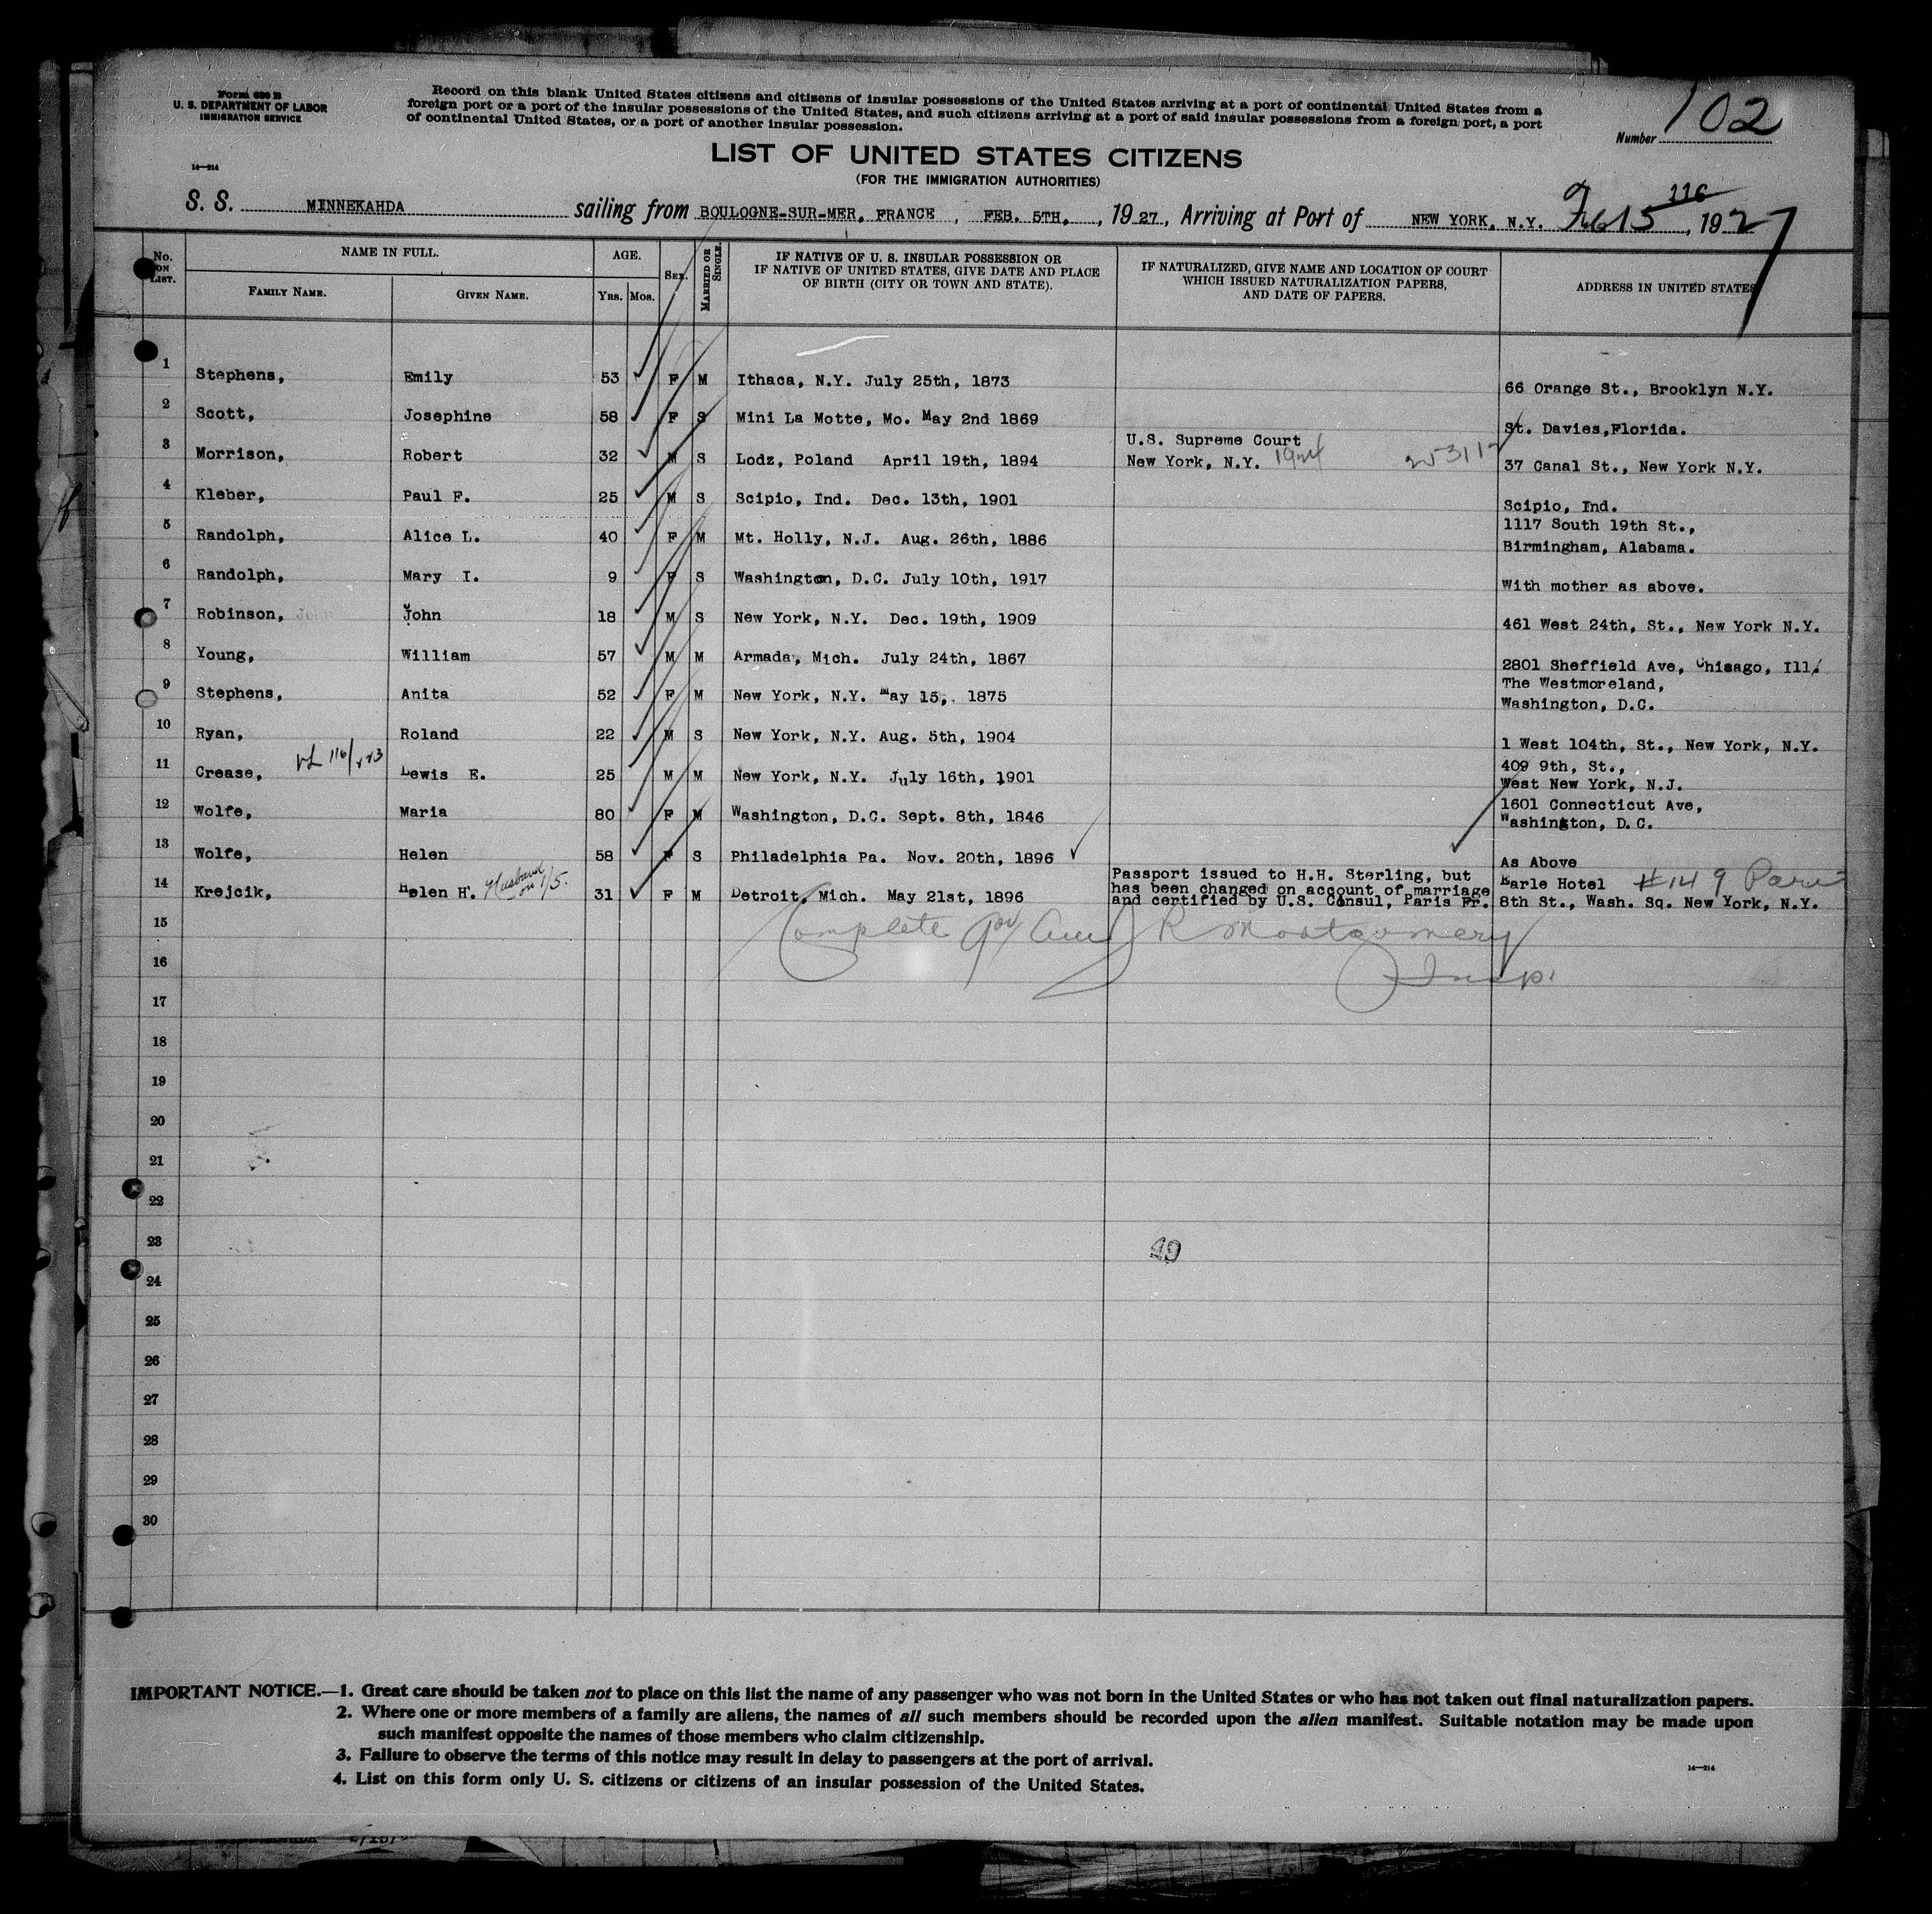 Form 630 B
U. S. DEPARTMENT OF LABOR
IMMIGRATION SERVICE
14—214
Record on this blank United States citizens and citizens of insular possessions of the United States arriving at a port of continental United States from a
foreign port or a port of the insular possessions of the United States, and such citizens arriving at a port of said insular possessions from a foreign port, a port
of continental United States, or a port of another insular possession.
Number 102
LIST OF UNITED STATES CITIZENS
(FOR THE IMMIGRATION AUTHORITIES)
116
S. S. MINNEKAHDA sailing from BOULOGNE-SUR-MER, FRANCE, FEB. 5TH, , 1927, Arriving at Port of NEW YORK, N.Y. Feb 15, 1927
No. ON LIST. NAME IN FULL. AGE. SEX. MARRIED OR SINGLE. IF NATIVE OF U. S. INSULAR POSSESSION OR IF NATIVE OF UNITED STATES, GIVE DATE AND PLACE OF BIRTH (CITY OR TOWN AND STATE). IF NATURALIZED, GIVE NAME AND LOCATION OF COURT WHICH ISSUED NATURALIZATION PAPERS, AND DATE OF PAPERS. ADDRESS IN UNITED STATES
FAMILY NAME. GIVEN NAME. Yrs. Mos.
1 Stephens, Emily 53 F M Ithaca, N.Y. July 25th, 1873 66 Orange St., Brooklyn N.Y.
2 Scott, Josephine 58 F S Mini La Motte, Mo. May 2nd 1869 St. Davies,Florida.
U.S. Supreme Court
3 Morrison, Robert 32 M S Lodz, Poland April 19th, 1894 New York, N.Y. 1924 37 Canal St., New York N.Y.
4 Kleber, Paul F. 25 M S Scipio, Ind. Dec. 13th, 1901 Scipio, Ind.
1117 South 19th St.,
5 Randolph, Alice L. 40 F M Mt. Holly, N.J. Aug. 26th, 1886 Birmingham, Alabama.
6 Randolph, Mary I. 9 F S Washington, D.C. July 10th, 1917 With mother as above.
7 Robinson, John 18 M S New York, N.Y. Dec. 19th, 1909 461 West 24th, St., New York N.Y.
8 Young, William 57 M M Armada, Mich. July 24th, 1867 2801 Sheffield Ave, Chisago, Ill.
The Westmoreland,
9 Stephens, Anita 52 F M New York, N.Y. May 15, 1875 Washington, D.C.
10 Ryan, Roland 22 M S New York, N.Y. Aug. 5th, 1904 1 West 104th, St., New York, N.Y.
409 9th, St.,
11 Crease, Lewis E. 25 M M New York, N.Y. July 16th, 1901 West New York, N.J.
1601 Connecticut Ave,
12 Wolfe, Maria 80 F M Washington, D.C. Sept. 8th, 1846 Washington, D.C.
13 Wolfe, Helen 58 F S Philadelphia Pa. Nov. 20th, 1896 As Above
Passport issued to H.H. Sterling, but
has been changed on account of marriage Earle Hotel #149 Paris
14 Krejcik, Helen H. Husband on 1/5. 31 F M Detroit, Mich. May 21st, 1896 and certified by U.S. Consul, Paris Fr. 8th St., Wash. Sq. New York, N.Y.
15
Complete R Montgomery
16
Insp.
17
18
19
20
21
22
23
49
24
25
26
27
28
29
30
IMPORTANT NOTICE.—1. Great care should be taken not to place on this list the name of any passenger who was not born in the United States or who has not taken out final naturalization papers.
2. Where one or more members of a family are aliens, the names of all such members should be recorded upon the alien manifest. Suitable notation may be made upon
such manifest opposite the names of those members who claim citizenship.
3. Failure to observe the terms of this notice may result in delay to passengers at the port of arrival.
4. List on this form only U. S. citizens or citizens of an insular possession of the United States.
14—214